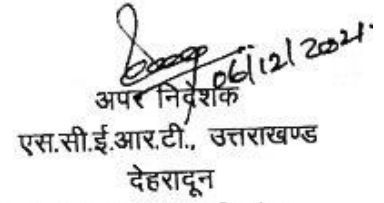 06/12/2021
अपर निदेशक
एस.सी.ई.आर.टी., उत्तराखण्ड
देहरादून